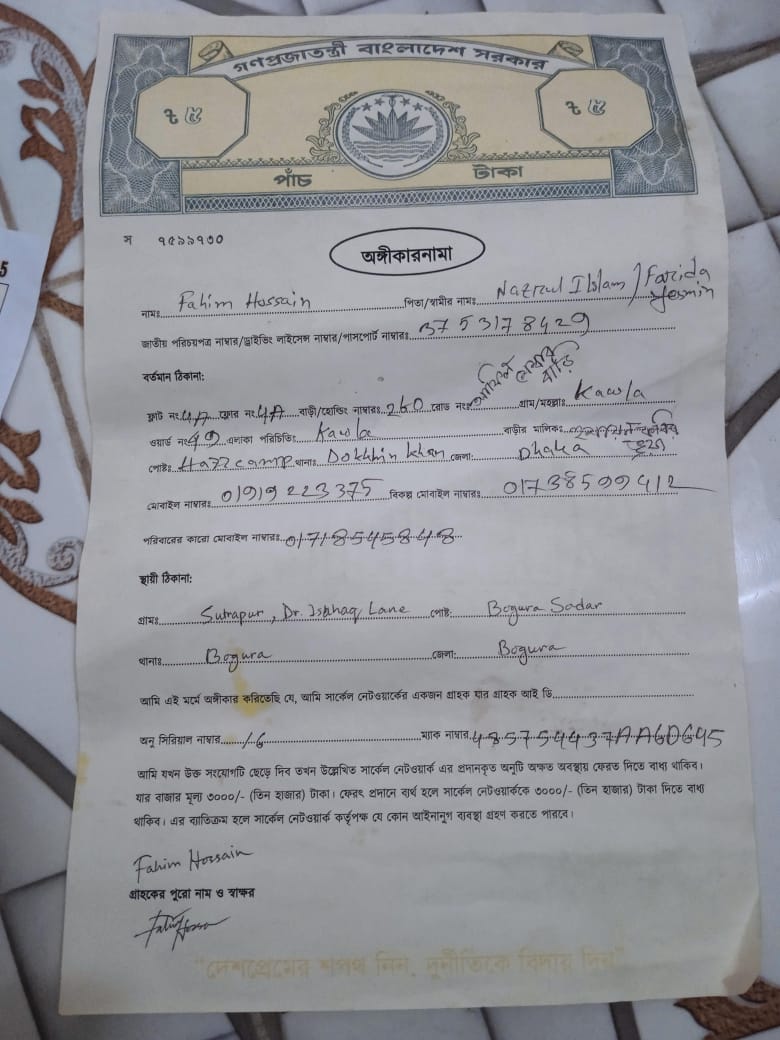 গণপ্রজাতন্ত্রী বাংলাদেশ সরকার
৳ ৫ ৳ ৫
পাঁচ টাকা
স ৭৫৯৯৭৩০
অঙ্গীকারনামা
নামঃ Fahim Hossain পিতা/স্বামীর নামঃ Nazrul Islam / Farida Yesmin
জাতীয় পরিচয়পত্র নাম্বার/ড্রাইভিং লাইসেন্স নাম্বার/পাসপোর্ট নাম্বারঃ 3753178429
বর্তমান ঠিকানা:
ফ্লাট নং 4A ফ্লোর নং 4A বাড়ী/হোল্ডিং নাম্বারঃ 260 রোড নংঃ আমিন মেম্বার বাড়ি গ্রাম/মহল্লাঃ Kawla
ওয়ার্ড নং 49 এলাকা পরিচিতিঃ Kawla বাড়ীর মালিকঃ
পোষ্টঃ Hazz camp থানাঃ Dokhhin khan জেলা: Dhaka
মোবাইল নাম্বারঃ 01919223375 বিকল্প মোবাইল নাম্বারঃ 01738599412
পরিবারের কারো মোবাইল নাম্বারঃ 01718545848
স্থায়ী ঠিকানা:
গ্রামঃ Sutrapur, Dr. Ishhaq Lane পোষ্ট: Bogura Sadar
থানাঃ Bogura জেলা: Bogura
আমি এই মর্মে অঙ্গীকার করিতেছি যে, আমি সার্কেল নেটওয়ার্কের একজন গ্রাহক যার গ্রাহক আই ডি
অনু সিরিয়াল নাম্বার 16 ম্যাক নাম্বার 485754437AA6D645
আমি যখন উক্ত সংযোগটি ছেড়ে দিব তখন উল্লেখিত সার্কেল নেটওয়ার্ক এর প্রদানকৃত অনুটি অক্ষত অবস্থায় ফেরত দিতে বাধ্য থাকিব।
যার বাজার মূল্য ৩০০০/- (তিন হাজার) টাকা। ফেরৎ প্রদানে ব্যর্থ হলে সার্কেল নেটওয়ার্ককে ৩০০০/- (তিন হাজার) টাকা দিতে বাধ্য
থাকিব। এর ব্যতিক্রম হলে সার্কেল নেটওয়ার্ক কর্তৃপক্ষ যে কোন আইনানুগ ব্যবস্থা গ্রহণ করতে পারবে।
Fahim Hossain
গ্রাহকের পুরো নাম ও স্বাক্ষর
"দেশপ্রেমের শপথ নিন, দুর্নীতিকে বিদায় দিন"